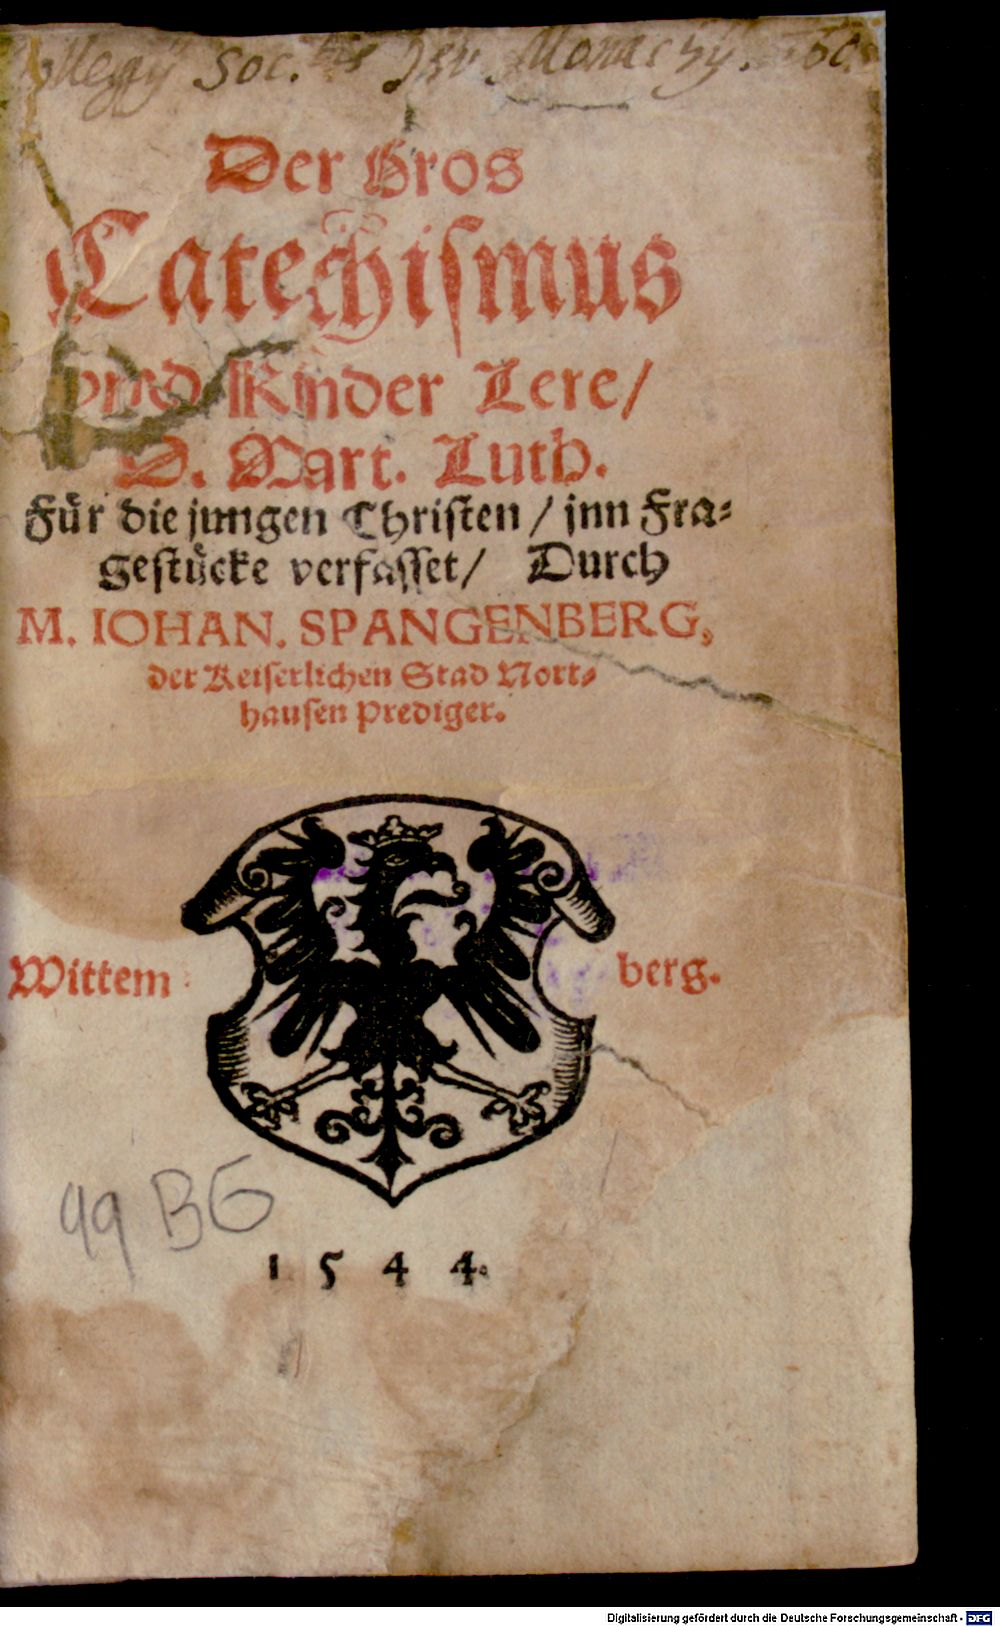 Collegij Soc.tis Jesu Monachij.
Der Gros
Catechismus
vnd Kinder Lere/
D. Mart. Luth.
Für die jungen Christen/ jnn Fra⸗
gestücke verfasset/ Durch
M. IOHAN. SPANGENBERG,
der Keiserlichen Stad Nort⸗
hausen Prediger.
Wittem berg.
99 BG
1 5 4 4.
Digitalisierung gefördert durch die Deutsche Forschungsgemeinschaft - DFG